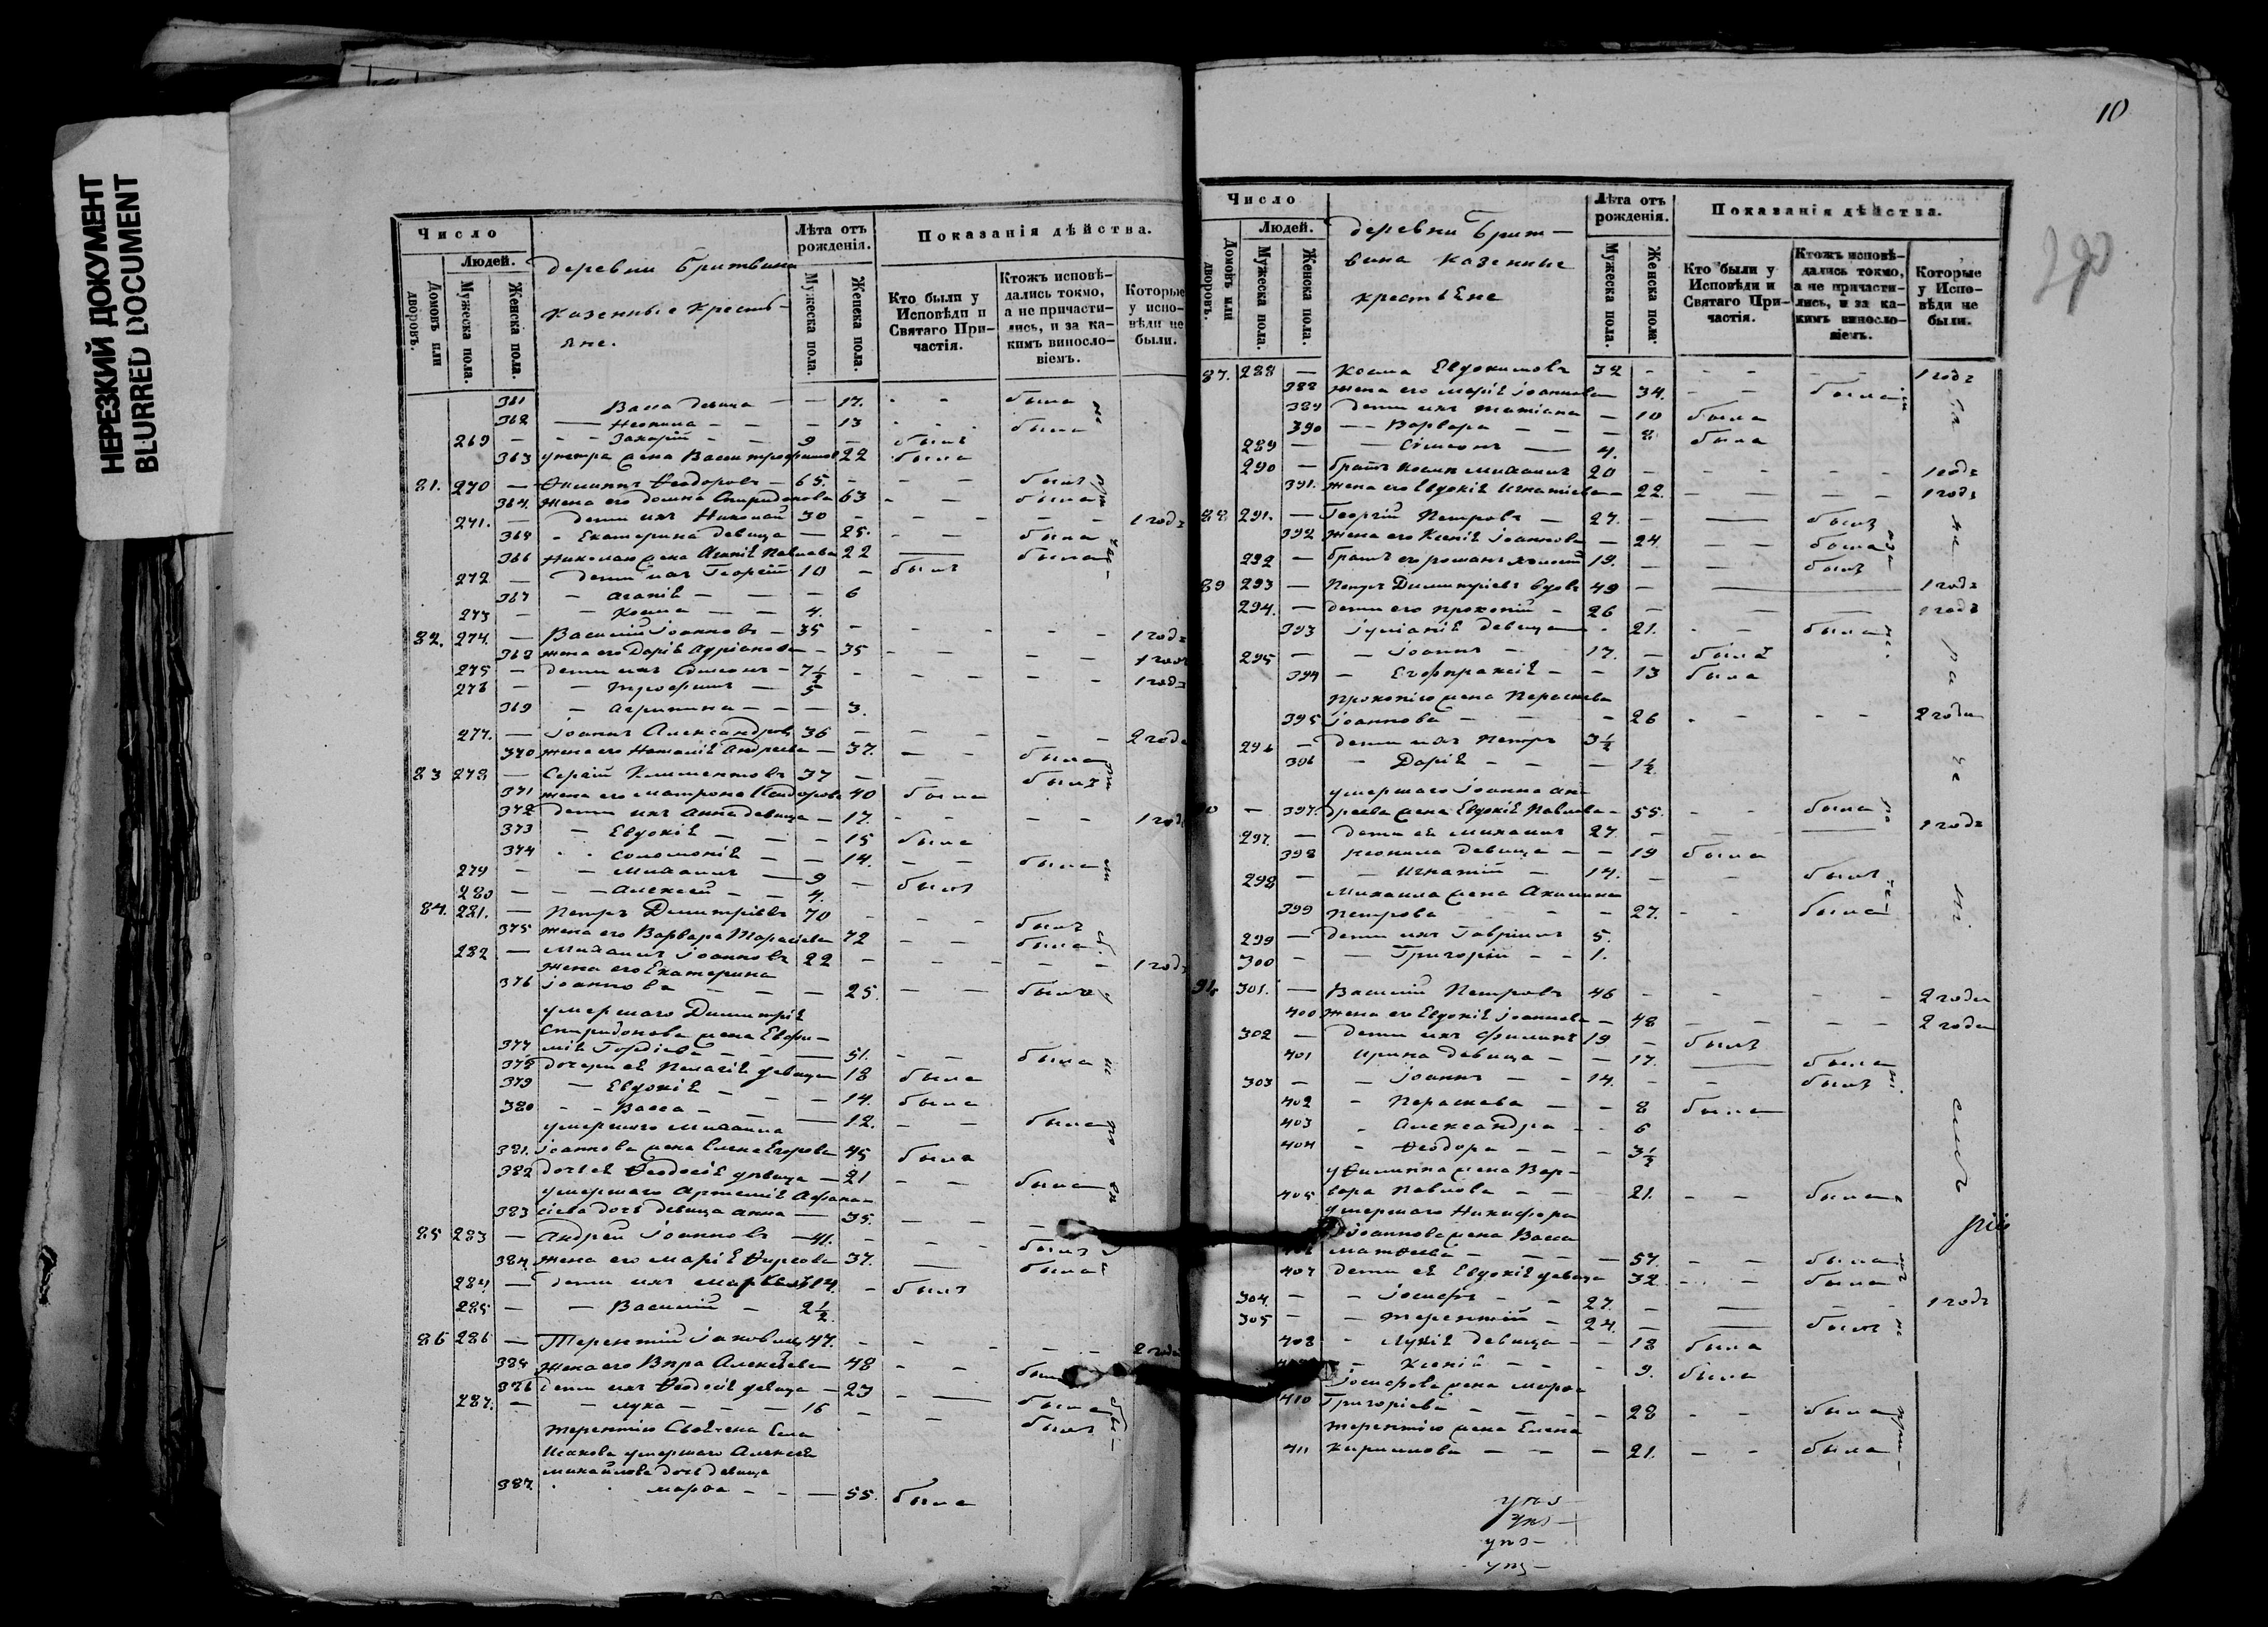 НЕРЕЗКИЙ ДОКУМЕНТ
BLURRED DOCUMENT
Число
Людей.
Домовъ или дворовъ.
Мужеска пола.
Женска пола.
деревни Бритвина
казенные кресть-
яне.
Лѣта отъ рожденія.
Мужеска пола.
Женска пола.
Показанія дѣйства.
Кто были у Исповѣди и Святаго Причастія.
Ктожъ исповѣдались токмо, а не причастились, и за какимъ винословіемъ.
Которые у исповѣди не были.
361 Васса девица — — 17. - - была
362 — Неонила — — 13 - - была
269 — - - Захарій - — 9 — былъ
363 22 была
81. 270 — Филиппъ Феодоровъ — 65. - - былъ
364. жена его Домна Спиридонова 63 - — была
271. — дети ихъ Николай 30 - - - - - 1 годъ
365 - Екатерина девица — 25. - - была
366 Николаю жена Агапія Павлова 22 — была
272 — дети ихъ Георгій 10 - былъ
367 — Агапія — — — 6
273 — — Косма — — 4.
82. 274. — Василій Іоанновъ — 35 - - - - 1 годъ
368 жена его Дарія Адріанова — 35 - — - - 1 годъ
275 — дети ихъ Симеонъ — 7½ - - - - - 1 годъ
276 — — Трофимъ — 5
369 — Агрипина — — — 3.
277. — Іоаннъ Александровъ 36 — - - - - 2 года
370 жена его Наталія Андреева — 37. — — была
83 278 — Сергій Климентовъ 37 — — былъ
371 жена его Матрона 40 была
372 дети ихъ Анна девица — 17. - - - - 1 годъ
373 — Евдокія — — — 15 была
374 - - Соломонія — — 14. — — была
279 — — Михаилъ — 9 — былъ
280 — — Алексей — — 4.
84. 281. — Петръ Димитріевъ 70 - - - былъ
375 жена его Варвара Тарасіева 72 - — была
282 — Михаилъ Іоанновъ 22 - - - - - 1 годъ
жена его Екатерина
376 Іоаннова — — — 25. — — была
умершаго Димитрія
Спиридонова жена Евфи-
377 мія Гордіева — — — 51. - - была
378 дочери ея Пелагія девица 18 была
379 — Евдокія — — — 14. была
380 - - Васса - — — 12. - — была
умершаго Михаила
381. Іоаннова жена Елена Егорова 45 была
382 дочь ея Феодосія девица — 21 - — была
умершаго Артемія Афана-
383 сіева дочь девица Анна — 35. — — —
85 283 — Андрей Іоанновъ — 41. - - - былъ
384. жена его Марія 37. — была
284. — дети ихъ 14. - былъ
285 — — Василій — 2½
86 286 — Терентій Іаковлевъ 47. - - - - - 2 года
384 жена его Вѣра Алексѣева 48 - —
386 дети ихъ Феодосія девица — 23 - — была
287. — — Лука — — — 16 - - былъ
Исакова умершаго Алексея
Михайлова дочь девица
387. Марфа — - — 55. была
10
290
Число
Людей.
Домовъ или дворовъ.
Мужеска пола.
Женска пола.
деревни Брит-
вина казенные
крестьяне
Лѣта отъ рожденія.
Мужеска пола.
Женска пола.
Показанія дѣйства.
Кто были у Исповѣди и Святаго Причастія.
Ктожъ исповѣдались токмо, а не причастились, и за какимъ винословіемъ.
Которые у Исповѣди не были.
87. 288 — Косма Евдокимовъ 32 - - - - - 1 годъ
388 жена его Марія Іоаннова — 34. - — была
389 дети ихъ Татіана — 10 была
390 — Варвара — — — 8 была
289 — — Симеонъ — 4.
290 — братъ Космы Михаилъ 20 - - - - - 1 годъ
391. жена его Евдокія Игнатіева — 22. — — — — 1 годъ
88 291. — Георгій Петровъ — 27. - — былъ
392 жена его Ксенія Іоаннова — 24 — — была
292 — братъ его 19. — — былъ
89 293 — Петръ Димитріевъ вдовъ 49 - — 1 годъ
294. — дети его Прокопій - 26 — — — 1 годъ
393 Іуліанія девица — 21. - - была
295 — — Іоаннъ — 17. — былъ
394 — Евфраксія — — 13 была
Прокопію жена Параскева
395 Іоаннова — — 26 - - - - 2 года
296 — дети ихъ Петръ 3½
396 — Дарія — — — 1½
умершаго Іоанна Ан-
— 397. дреева жена Евдокія Павлова — 55. - - была
297. — дети ея Михаилъ 27. - — — 1 годъ
398 Неонила девица — — 19 была
298 — — Игнатій — 14. — - былъ
Михаила жена Акилина
399 Петрова — — — 27. - — была
299 — дети ихъ Гавріилъ 5.
300 — — Григорій — — 1.
91. 301. — Василій Петровъ 46 - - - - 2 года
400 жена его Евдокія Іоаннова — 48 — — — - 2 года
302 — дети ихъ Филипъ 19 — былъ
401 Ирина девица — — 17. — была
303 — — Іоаннъ — — 14. — - былъ
402 - Параскева — — 8 была
403 - Александра - - 6
404 - Феодора — — — 3½
у Филиппа жена Вар-
405 вара Павлова — — 21. — — была
умершаго Никифора
Іоаннова жена Васса
406 Матфеева — — — 57. - — была
407 дети ея Евдокія девица 32. — — была
304. — — Іосифъ - - 27. — — — - 1 годъ
305 — — Терентій — 24. — — былъ
408 - Лукія девица — — 18 была
— Ксенія — — — 9. была
Іосифова жена Марфа
410 Григоріева — — — 28 - - была
Терентію жена Елена
411 Кирилова — — — 21. - - была